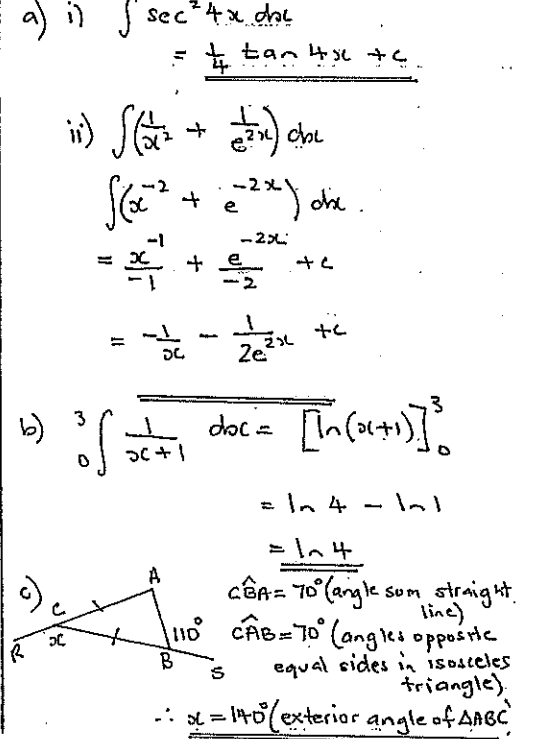 a) i) ∫ sec² 4x dx
= 1/4 tan 4x + c
ii) ∫(1/x² + 1/e^(2x)) dx
∫(x^(-2) + e^(-2x)) dx.
= x^(-1)/-1 + e^(-2x)/-2 + c
= -1/x - 1/(2e^(2x)) + c
b) ₀³∫ 1/(x+1) dx = [ln(x+1)]₀³
= ln 4 - ln 1
= ln 4
c) R C x A 110° B S
CB̂A = 70° (angle sum straight
line)
CÂB = 70° (angles opposite
equal sides in isosceles
triangle).
∴ x = 140° (exterior angle of ΔABC)